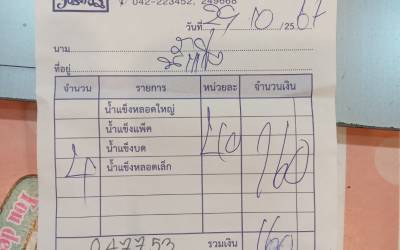 042-223452, 249668
วันที่ 29/10/2567
นาม
ที่อยู่
จำนวน รายการ หน่วยละ จำนวนเงิน
น้ำแข็งหลอดใหญ่
น้ำแข็งแพ็ค
น้ำแข็งบด
4 น้ำแข็งหลอดเล็ก 40 160
047753 รวมเงิน 160
You de